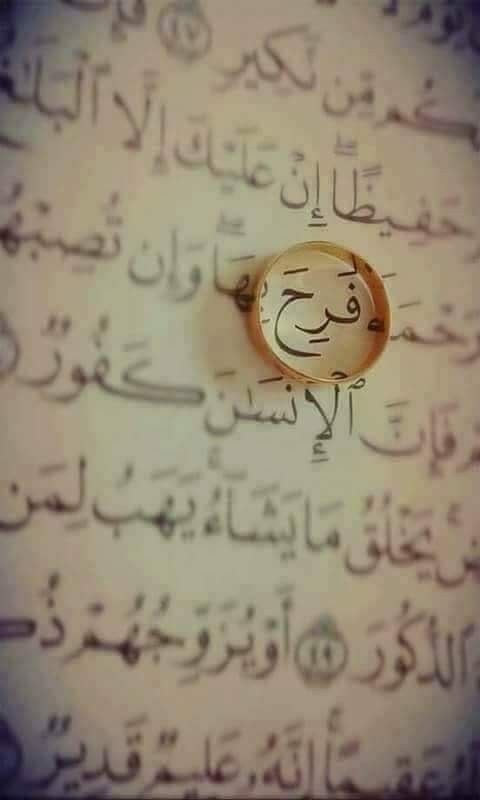 كُم مِّن نَّكِيرٍ ٤٧ فَإِنْ
حَفِيظًا ۖ إِنْ عَلَيْكَ إِلَّا ٱلْبَلَـٰغُ
رَحْمَةً فَرِحَ بِهَا ۖ وَإِن تُصِبْهُ
فَإِنَّ ٱلْإِنسَـٰنَ كَفُورٌ
يَخْلُقُ مَا يَشَآءُ ۚ يَهَبُ لِمَن
ٱلذُّكُورَ ٤٩ أَوْ يُزَوِّجُهُمْ ذُكْ
عَقِيمًا ۚ إِنَّهُۥ عَلِيمٌ قَدِيرٌ